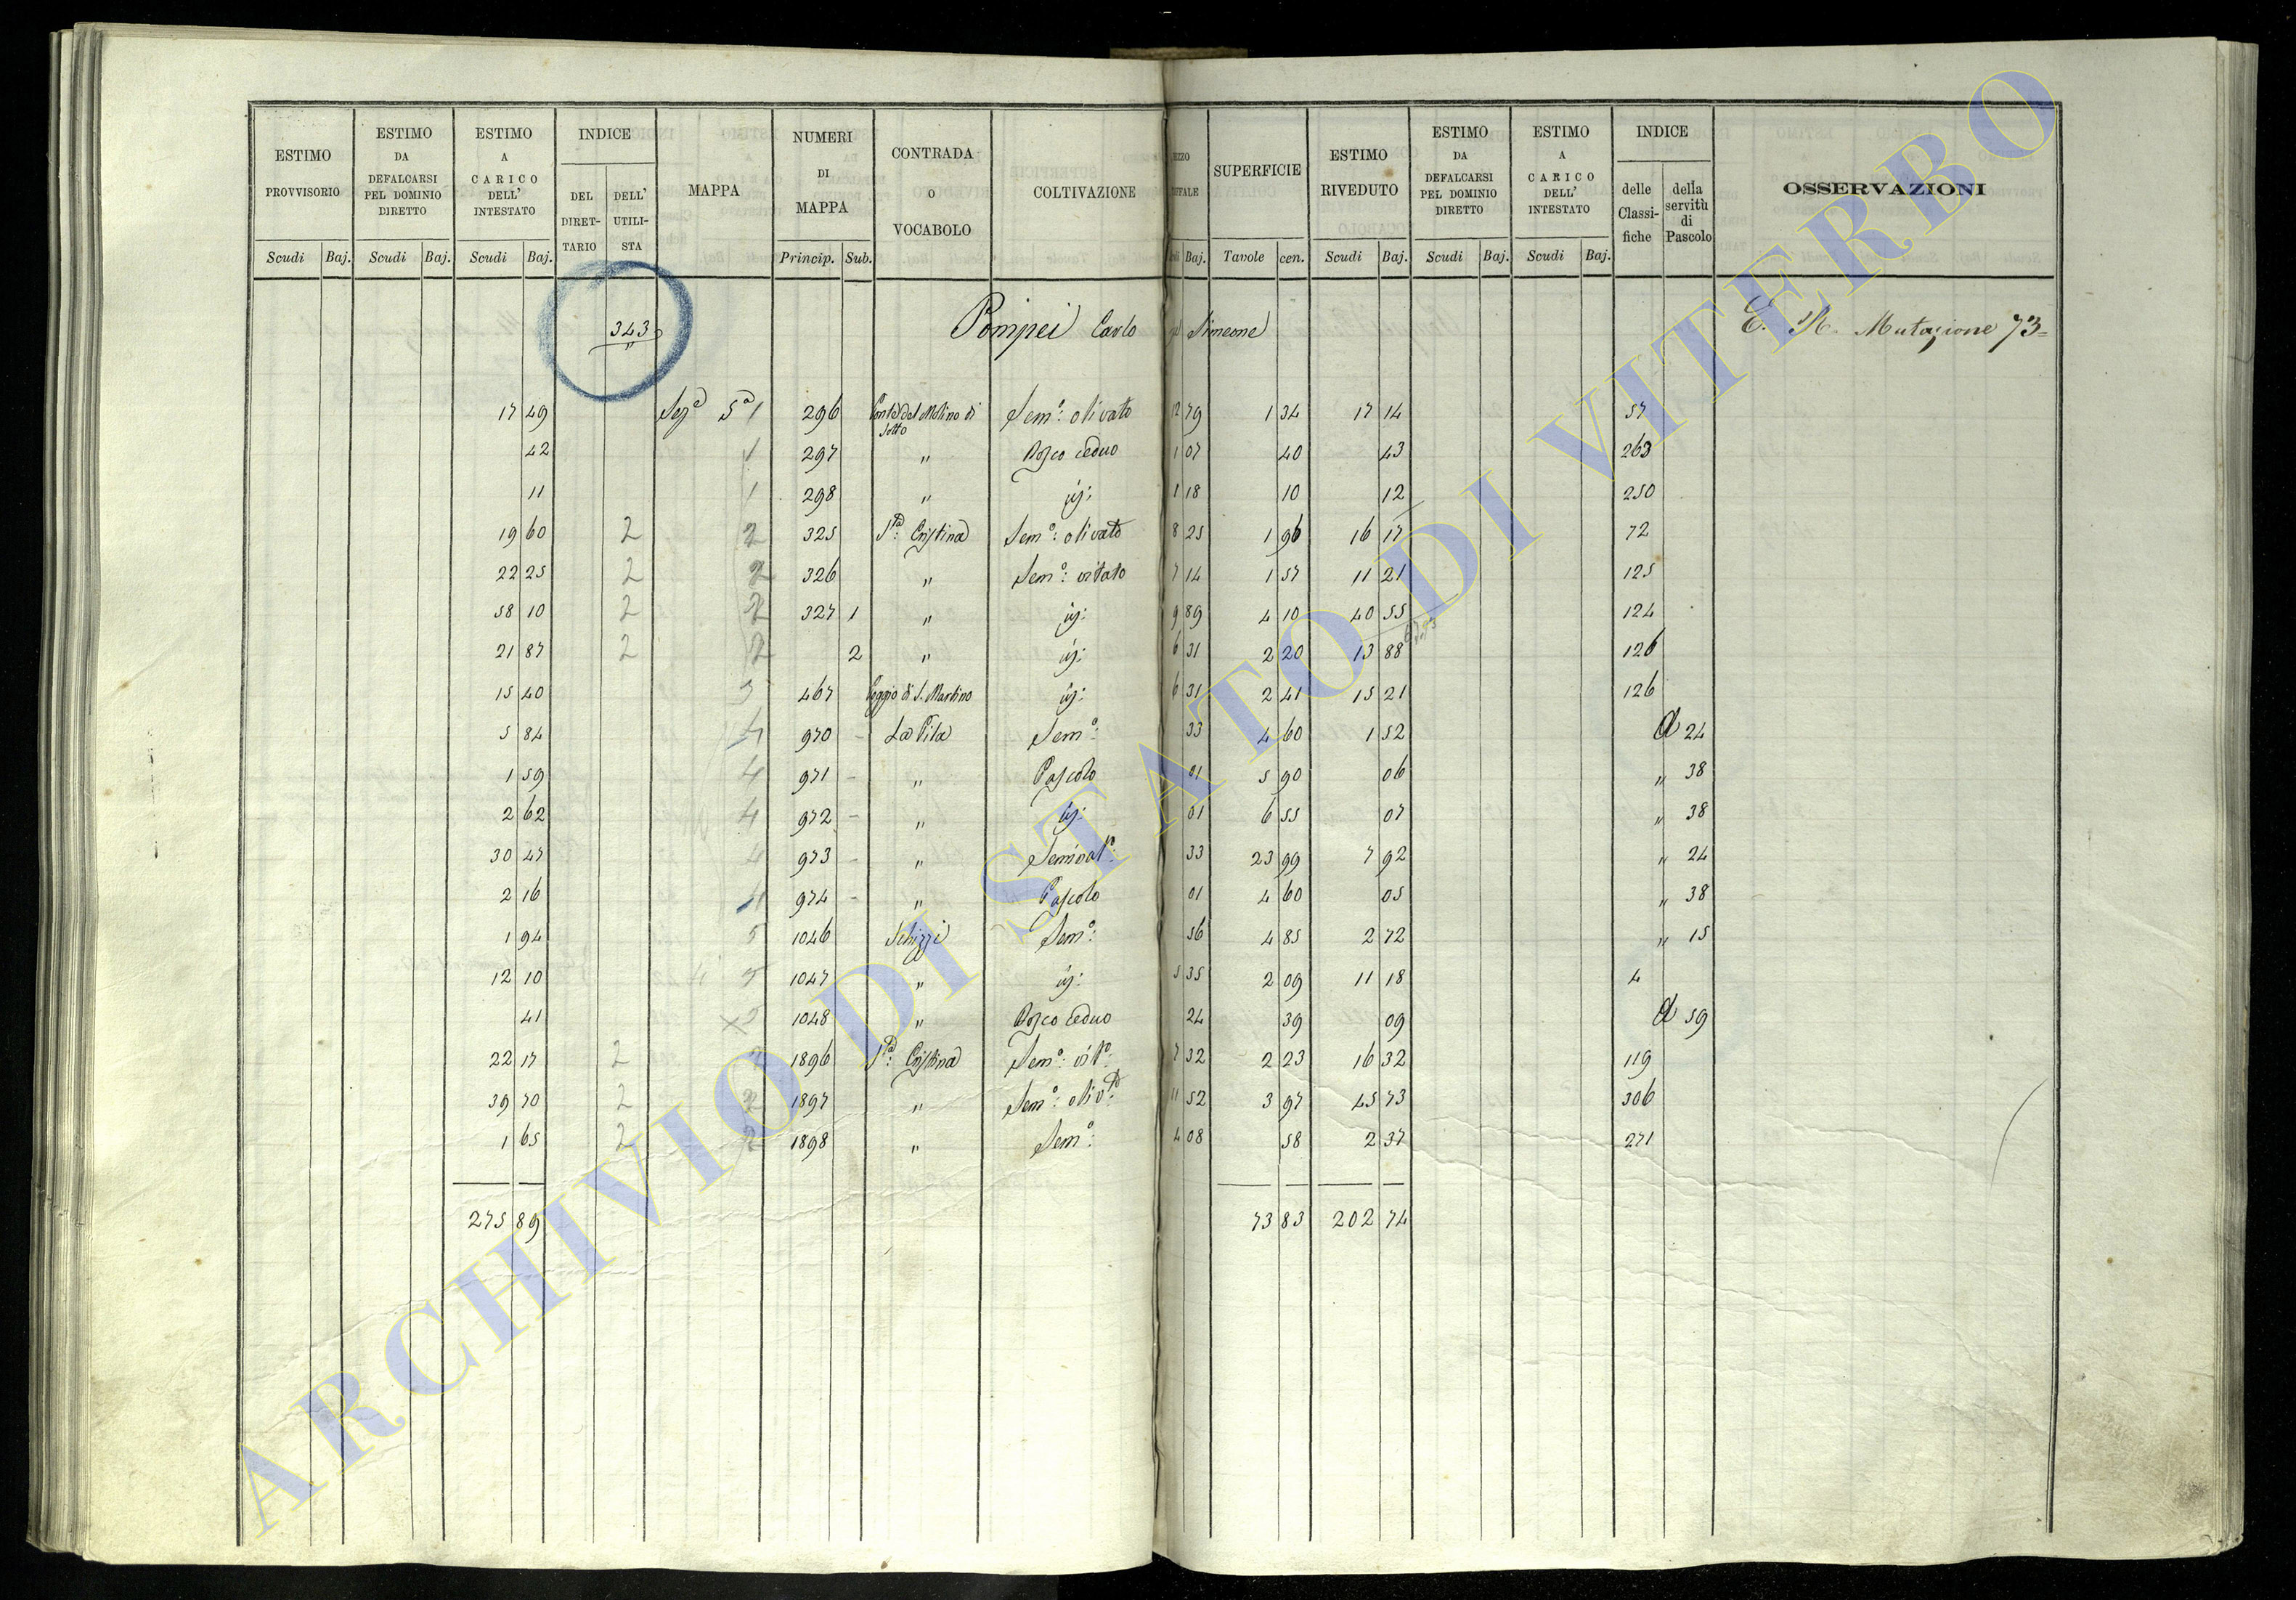 ESTIMO PROVVISORIO | ESTIMO DA DEFALCARSI PEL DOMINIO DIRETTO | ESTIMO A CARICO DELL' INTESTATO | INDICE DEL DIRETTARIO | DELL' UTILISTA | MAPPA | NUMERI DI MAPPA | CONTRADA o VOCABOLO | COLTIVAZIONE | SUPERFICIE | ESTIMO RIVEDUTO | ESTIMO DA DEFALCARSI PEL DOMINIO DIRETTO | ESTIMO A CARICO DELL' INTESTATO | INDICE delle Classifiche | della servitù di Pascolo | OSSERVAZIONI
Scudi Baj. Scudi Baj. Scudi Baj. Princip. Sub. Baj. Tavole cen. Scudi Baj. Scudi Baj. Scudi Baj.
343 Pompei Carlo Simeone E. R. Mutazione 73=
17 49 Sezᵃ 5ᵃ 1 296 del Molino di Sotto Semᵒ: olivato 12 79 1 34 17 14 57
42 1 297 " Bosco ceduo 1 07 40 43 263
11 1 298 " ig: 1 18 10 12 250
19 60 2 2 325 Sᵗᵃ: Cristina Semᵒ: olivato 8 25 1 96 16 17 72
22 25 2 2 326 " Semᵒ: vitato 7 14 1 57 11 21 125
58 10 2 2 327 1 " ig: 9 89 4 10 40 55 124
21 87 2 2 2 " ig: 6 31 2 20 13 88 126
15 40 3 467 Poggio di S. Martino ig: 6 31 2 41 15 21 126
5 84 4 970 - La Pila Semᵒ: 33 4 60 1 52 a 24
1 59 4 971 - " Pascolo 01 5 90 06 " 38
2 62 4 972 - " ig: 01 6 55 07 " 38
30 47 4 973 - " Seminatᵒ: 33 23 99 7 92 " 24
2 16 4 974 - " Pascolo 01 4 60 05 " 38
1 94 5 1046 Schizzi Semᵒ: 56 4 85 2 72 " 15
12 10 5 1047 " ig: 5 35 2 09 11 18 4
41 X 5 1048 " Bosco ceduo 24 39 09 a 59
22 17 2 2 1896 Sᵗᵃ: Cristina Semᵒ: vitᵒ: 7 32 2 23 16 32 119
39 70 2 2 1897 " Semᵒ: olivᵗᵒ: 11 52 3 97 45 73 306
1 65 2 2 1898 " Semᵒ: 4 08 58 2 37 271
275 89 73 83 202 74
ARCHIVIO DI STATO DI VITERBO